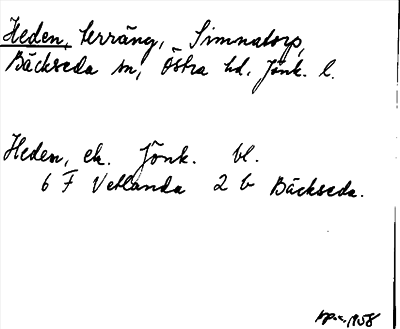 Heden, terräng, Simnatorp,
Bäckseda sn, Östra hd, Jönk. l.
Heden, ek. Jönk. bl.
6 F Vetlanda 2 b Bäckseda.
1958